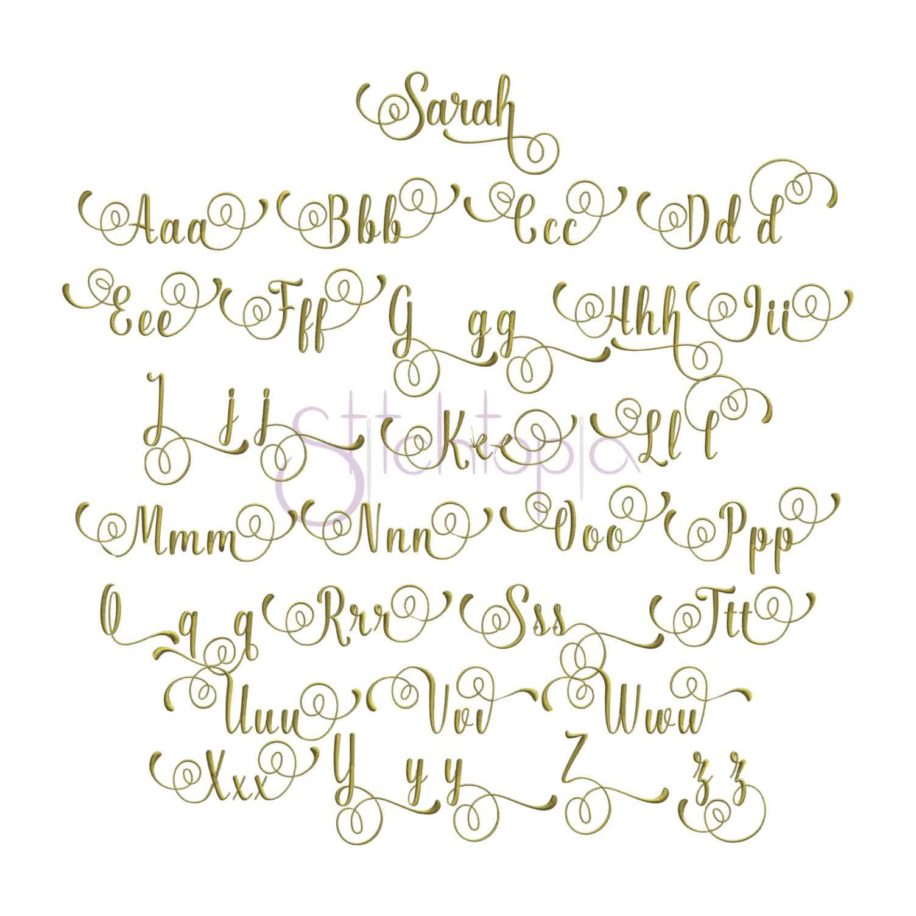 Sarah
Aaa Bbb Ccc Dd d
Eee Fff G gg Hhh Iii
J jj Kee Ll l
Stitchtopia
Mmm Nnn Ooo Ppp
Q q q Rrr Sss Ttt
Uuu Vvv Www
Xxx Y y y Z z z